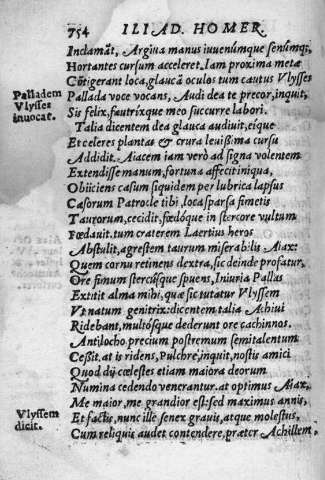 754 ILIAD. HOMER.
Inclamāt, Argiua manus iuuenúmque senúmq;,
Hortantes cursum acceleret. Iam proxima metæ
Cōtigerant loca, glaucā oculos tum cautus Vlysses
Palladem
Vlysses
inuocat.
Pallada voce vocans, Audi dea te precor, inquit,
Sis felix, fautrixque meo succurre labori.
Talia dicentem dea glauca audiuit, eique
Et celeres plantas & crura leuißima cursu
Addidit. Aiacem iam verò ad signa volentem
Extendisse manum, fortuna affecit iniqua,
Obiiciens casum siquidem per lubrica lapsus
Cæsorum Patrocle tibi, loca sparsa fimetis
Taurorum, cecidit, fœdóque in stercore vultum
Fœdauit. tum craterem Laertius heros
Abstulit, agrestem taurum miserabilis Aiax:
Quem cornu retinens dextra, sic deinde profatur,
Ore fimum stercúsque spuens, Iniuria Pallas
Extitit alma mihi, quæ sic tutatur Vlyssem
Vt natum genitrix: dicentem talia Achiui
Ridebant, multósque dederunt ore cachinnos.
Antilocho precium postremum semitalentum
Ceßit, at is ridens, Pulchrè, inquit, nostis amici
Quod dij cœlestes etiam maiora deorum
Numina cedendo venerantur. at optimus Aiax,
Me maior, me grandior est: sed maximus annis,
Vlyssem
dicit.
Et factis, nunc ille senex grauis, atque molestus,
Cum reliquis audet contendere, præter Achillem.